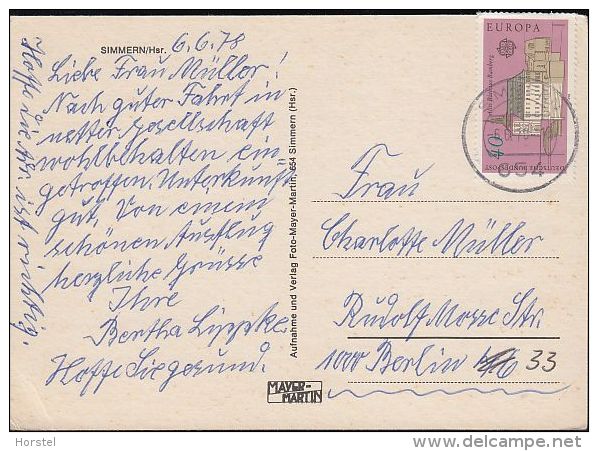 SIMMERN/Hsr. 6.6.78
Liebe Frau Müller!
Nach guter Fahrt in
netter Gesellschaft
wohlbehalten ein
getroffen. Unterkunft
gut. Von einem
schönen Ausflug
herzliche Grüsse
Ihre
Bertha Lippke
Hoffe Sie gesund.
Hoffe die ist richtig.
Aufnahme und Verlag Foto-Mayer-Martin, 654 Simmern (Hsr.)
MAYER-
MARTIN
EUROPA
40
DEUTSCHE BUNDESPOST
654
Frau
Charlotte Müller
Rudolf Mosse Str.
1000 Berlin 33
Horstel
www.delcampe.net